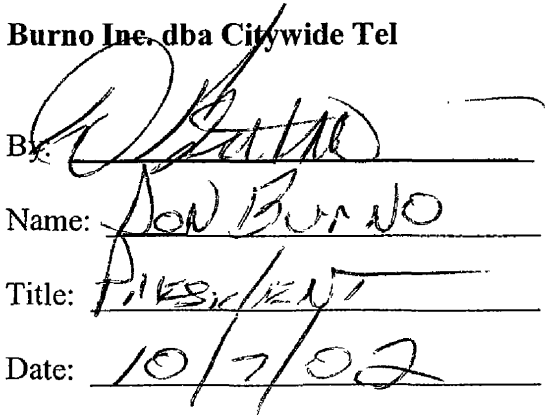 Burno Inc. dba Citywide Tel
By:
Name: DON BURNO
Title: PRESIDENT
Date: 10/7/02